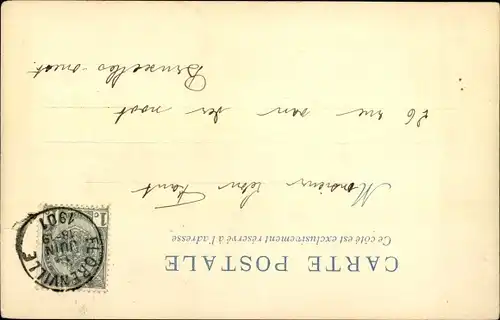 CARTE POSTALE
Ce côté est exclusivement réservé à l'adresse
Monsieur
26 rue van der noot
Bruxelles-ouest
1c
FLORENVILLE
JUIN
1901